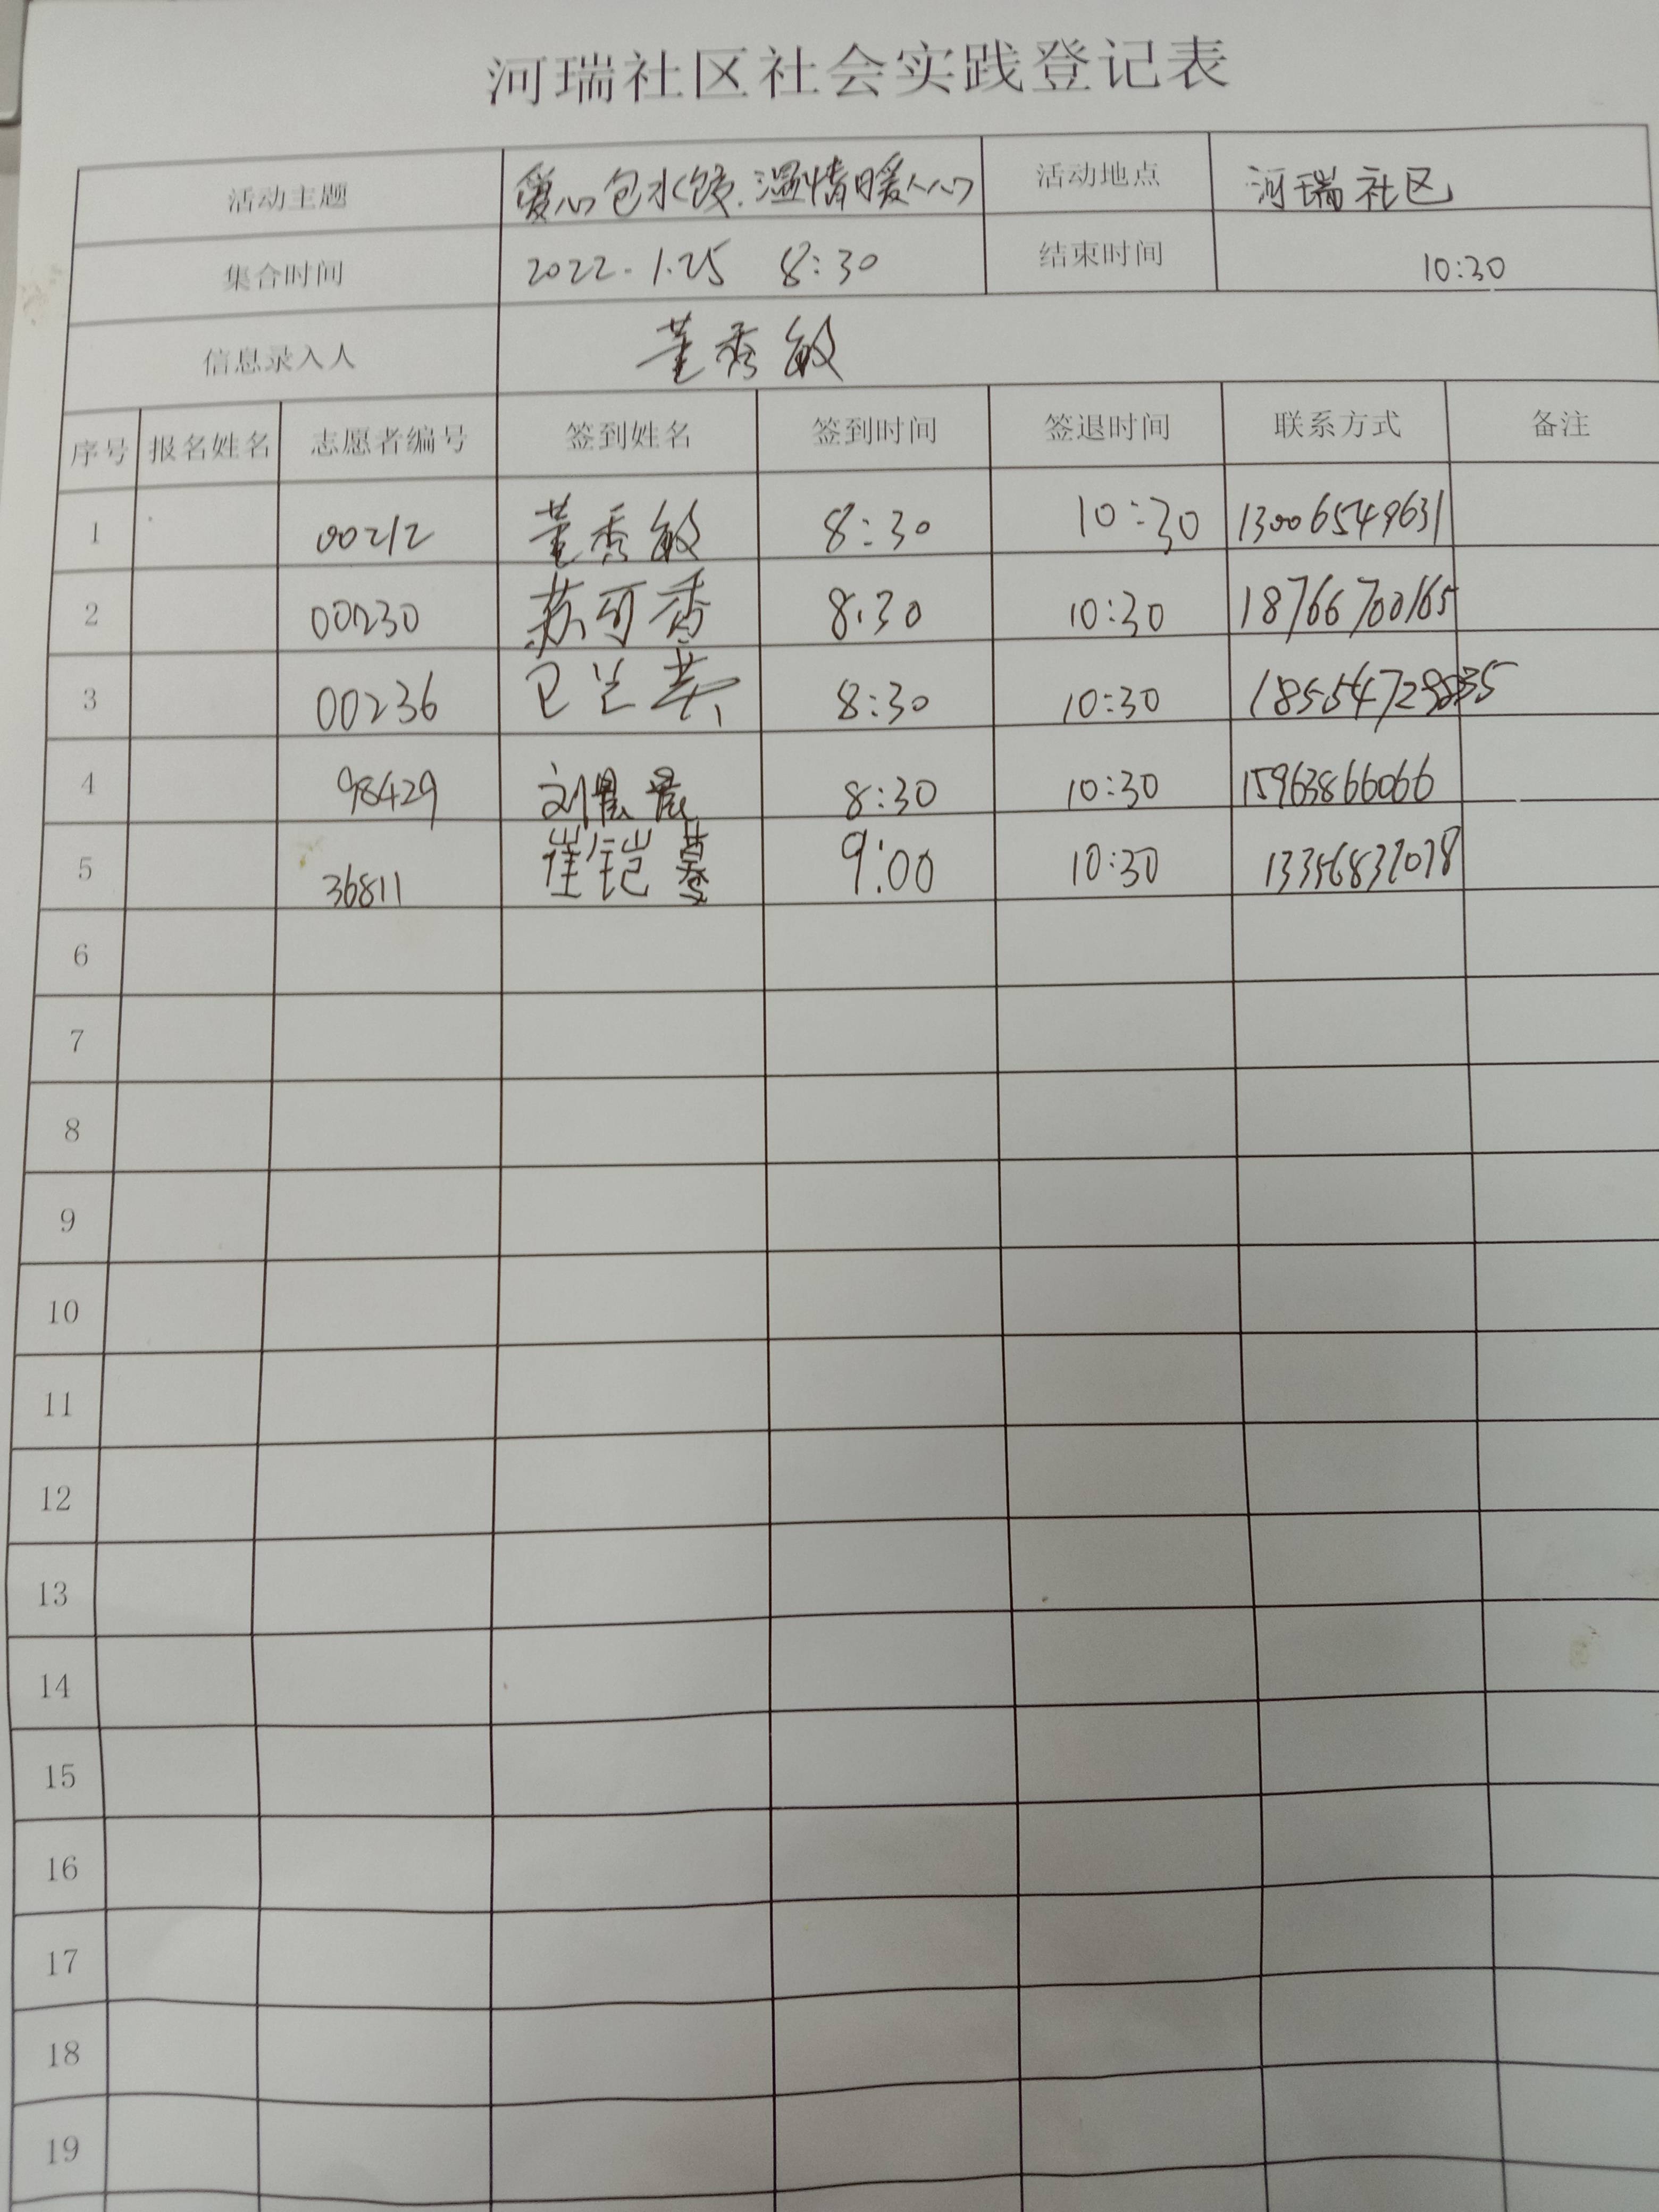 河瑞社区社会实践登记表
活动主题 爱心包水饺.温情暖人心 活动地点 河瑞社区
集合时间 2022.1.25 8:30 结束时间 10:30
信息录入人 董秀敏
序号 报名姓名 志愿者编号 签到姓名 签到时间 签退时间 联系方式 备注
1 00212 董秀敏 8:30 10:30 13006549631
2 00230 苏可香 8:30 10:30 18766700165
3 00236 8:30 10:30
4 98429 刘晨晨 8:30 10:30 15963866066
5 36811 崔铠蓦 9:00 10:30
6
7
8
9
10
11
12
13
14
15
16
17
18
19